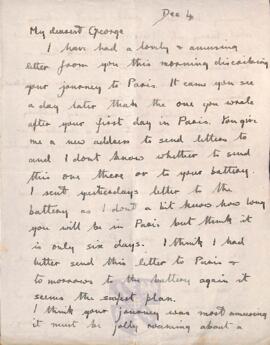 Dec 4
My dearest George
I have had a lovely & amusing
letter from you this morning describing
your journey to Paris. It came you see
a day later than the one you wrote
after your first day in Paris. You give
me a new address to send letters to
and I dont know whether to send
this one there or to your battery.
I sent yesterdays letter to the
battery as I dont a bit know how long
you will be in Paris but think it
is only six days. I think I had
better send this letter to Paris &
to morrows to the battery again it
seems the safest plan.
I think your journey was most amusing
it must be jolly roaming about a